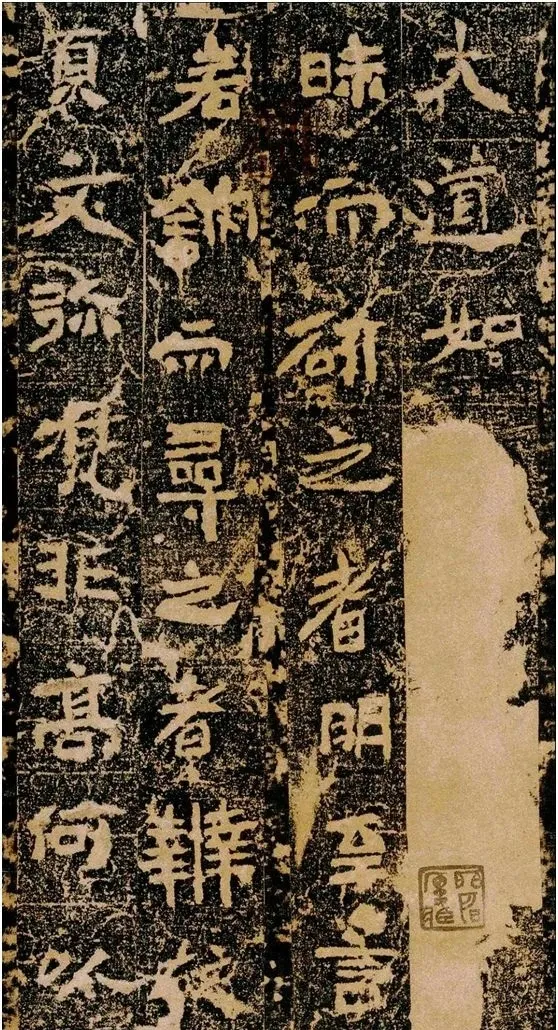 大道如
昧而研之者明至言
若訥而尋之者故
文弥梵非高何